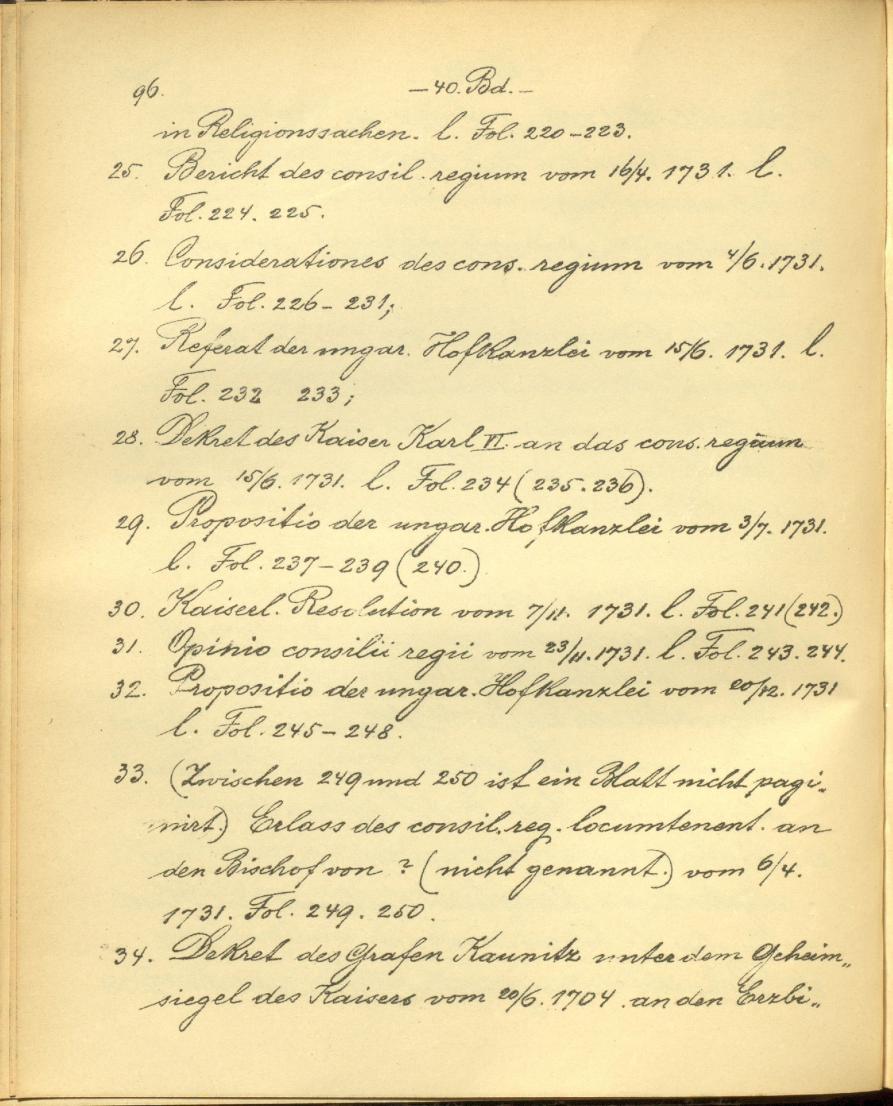 96. —40. Bd.—
in Religionssachen. l. Fol. 220–223.
25. Bericht des consil. regium vom 16/4. 1731. l.
Fol. 224. 225.
26. Considerationes des cons. regium vom 4/6. 1731.
l. Fol. 226–231;
27. Referat der ungar. Hofkanzlei vom 15/6. 1731. l.
Fol. 232 233;
28. Dekret des Kaiser Karl VI. an das cons. regium
vom 15/6. 1731. l. Fol. 234 (235. 236).
29. Propositio der ungar. Hofkanzlei vom 3/7. 1731.
l. Fol. 237–239 (240.)
30. Kaiserl. Resolution vom 7/11. 1731. l. Fol. 241 (242.)
31. Opinio consilii regii vom 23/11. 1731. l. Fol. 243. 244.
32. Propositio der ungar. Hofkanzlei vom 20/12. 1731
l. Fol. 245–248.
33. (Zwischen 249 und 250 ist ein Blatt nicht pagi„
nirt.) Erlass des consil. reg. locumtenent. an
den Bischof von ? (nicht genannt.) vom 6/4.
1731. Fol. 249. 250.
34. Dekret des Grafen Kaunitz unter dem Geheim„
siegel des Kaisers vom 20/6. 1704. an den Erzbi„